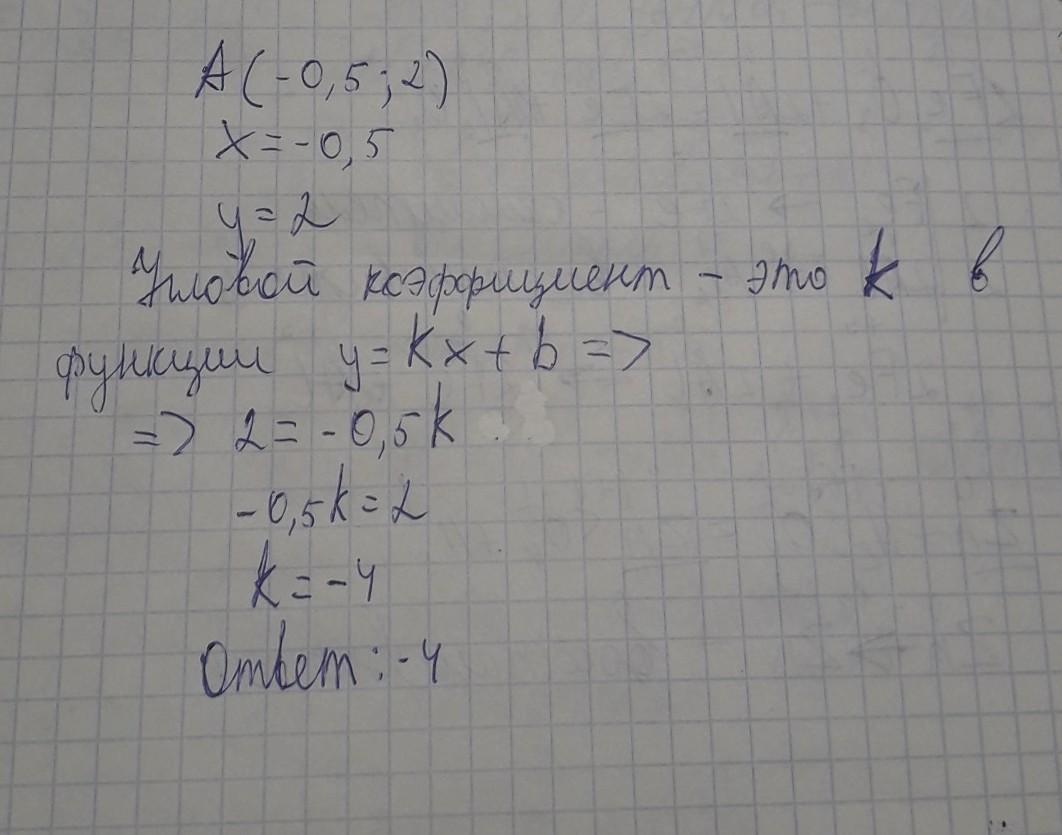 A(-0,5;2)
x=-0,5
y=2
Угловой коэффициент - это k в
функции y=kx+b=>
=> 2=-0,5k
-0,5k=2
k=-4
Ответ:-4